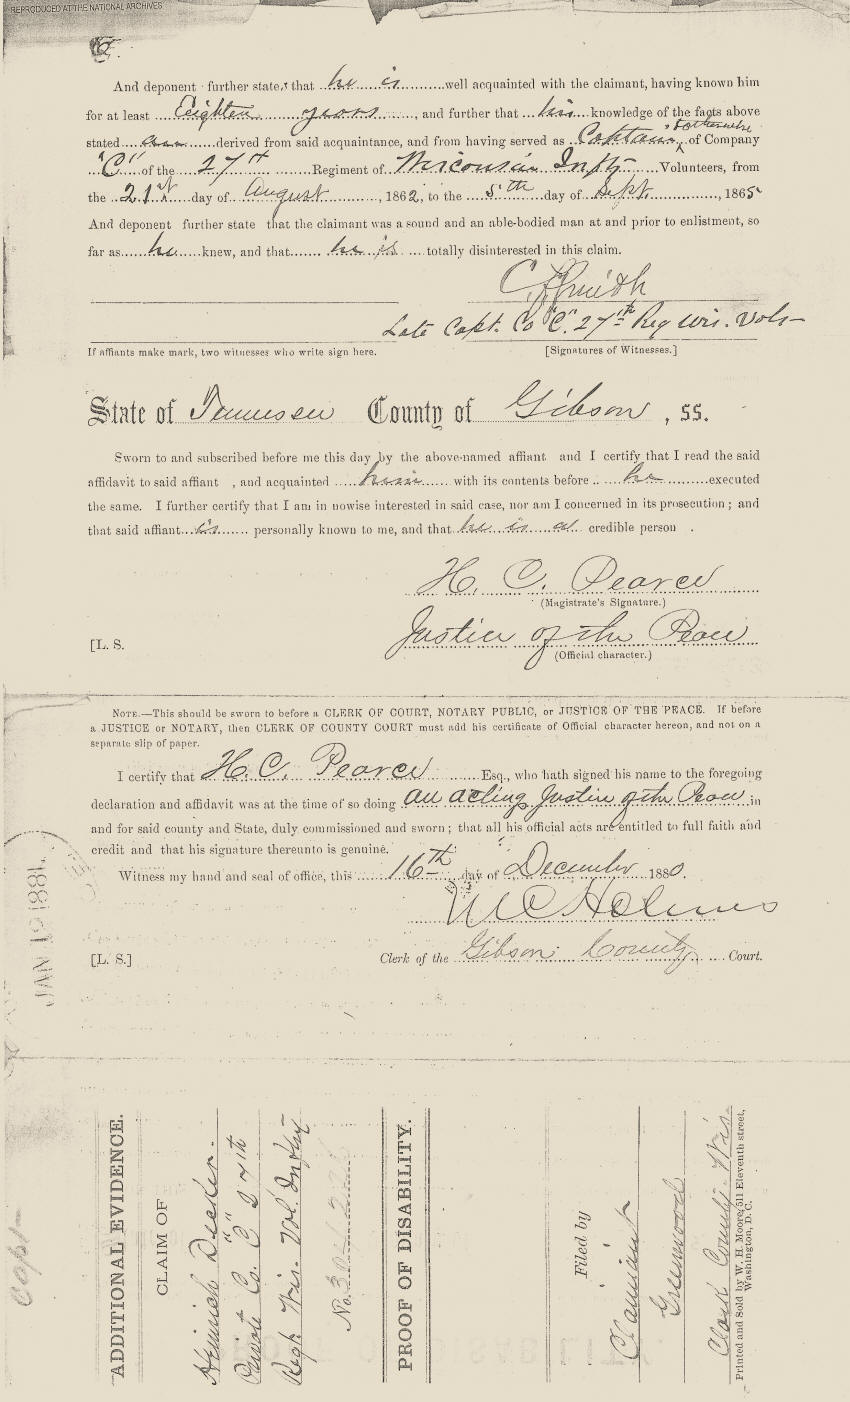 REPRODUCED AT THE NATIONAL ARCHIVES
And deponent further states that he is well acquainted with the claimant, having known him
for at least Eighteen years, and further that his knowledge of the facts above
stated are derived from said acquaintance, and from having served as Captain & otherwise of Company
"C" of the 27th Regiment of Wisconsin Infty Volunteers, from
the 21st day of August, 1862, to the 5th day of Sept., 1865
And deponent further state that the claimant was a sound and an able-bodied man at and prior to enlistment, so
far as he knew, and that he is totally disinterested in this claim.
C. Smith
Late Capt. Co "C". 27th Reg Wis. Vols
If affiants make mark, two witnesses who write sign here.
[Signatures of Witnesses.]
State of Tennessee County of Gibson, ss.
Sworn to and subscribed before me this day by the above-named affiant and I certify that I read the said
affidavit to said affiant, and acquainted him with its contents before he executed
the same. I further certify that I am in nowise interested in said case, nor am I concerned in its prosecution; and
that said affiant is personally known to me, and that he is a credible person.
H. C. Pearce
(Magistrate's Signature.)
[L. S. Justice of the Peace
(Official character.)
NOTE.—This should be sworn to before a CLERK OF COURT, NOTARY PUBLIC, or JUSTICE OF THE PEACE. If before
a JUSTICE or NOTARY, then CLERK OF COUNTY COURT must add his certificate of Official character hereon, and not on a
separate slip of paper.
I certify that H. C. Pearce Esq., who hath signed his name to the foregoing
declaration and affidavit was at the time of so doing an acting Justice of the Peace in
and for said county and State, duly commissioned and sworn; that all his official acts are entitled to full faith and
credit and that his signature thereunto is genuine.
Witness my hand and seal of office, this 16th day of December 1880.
W C Holmes
[L. S.] Clerk of the Gibson County Court.
JAN 31 1881
Copy
ADDITIONAL EVIDENCE.
CLAIM OF
Heinrich Decker.
Private Co. "C" 27th
Regt. Wis. Vol. Infty
No.
PROOF OF DISABILITY.
Filed by
Claimant
Greenwood
Clark County Wis.
Printed and Sold by W. H. Moore, 511 Eleventh street,
Washington, D. C.